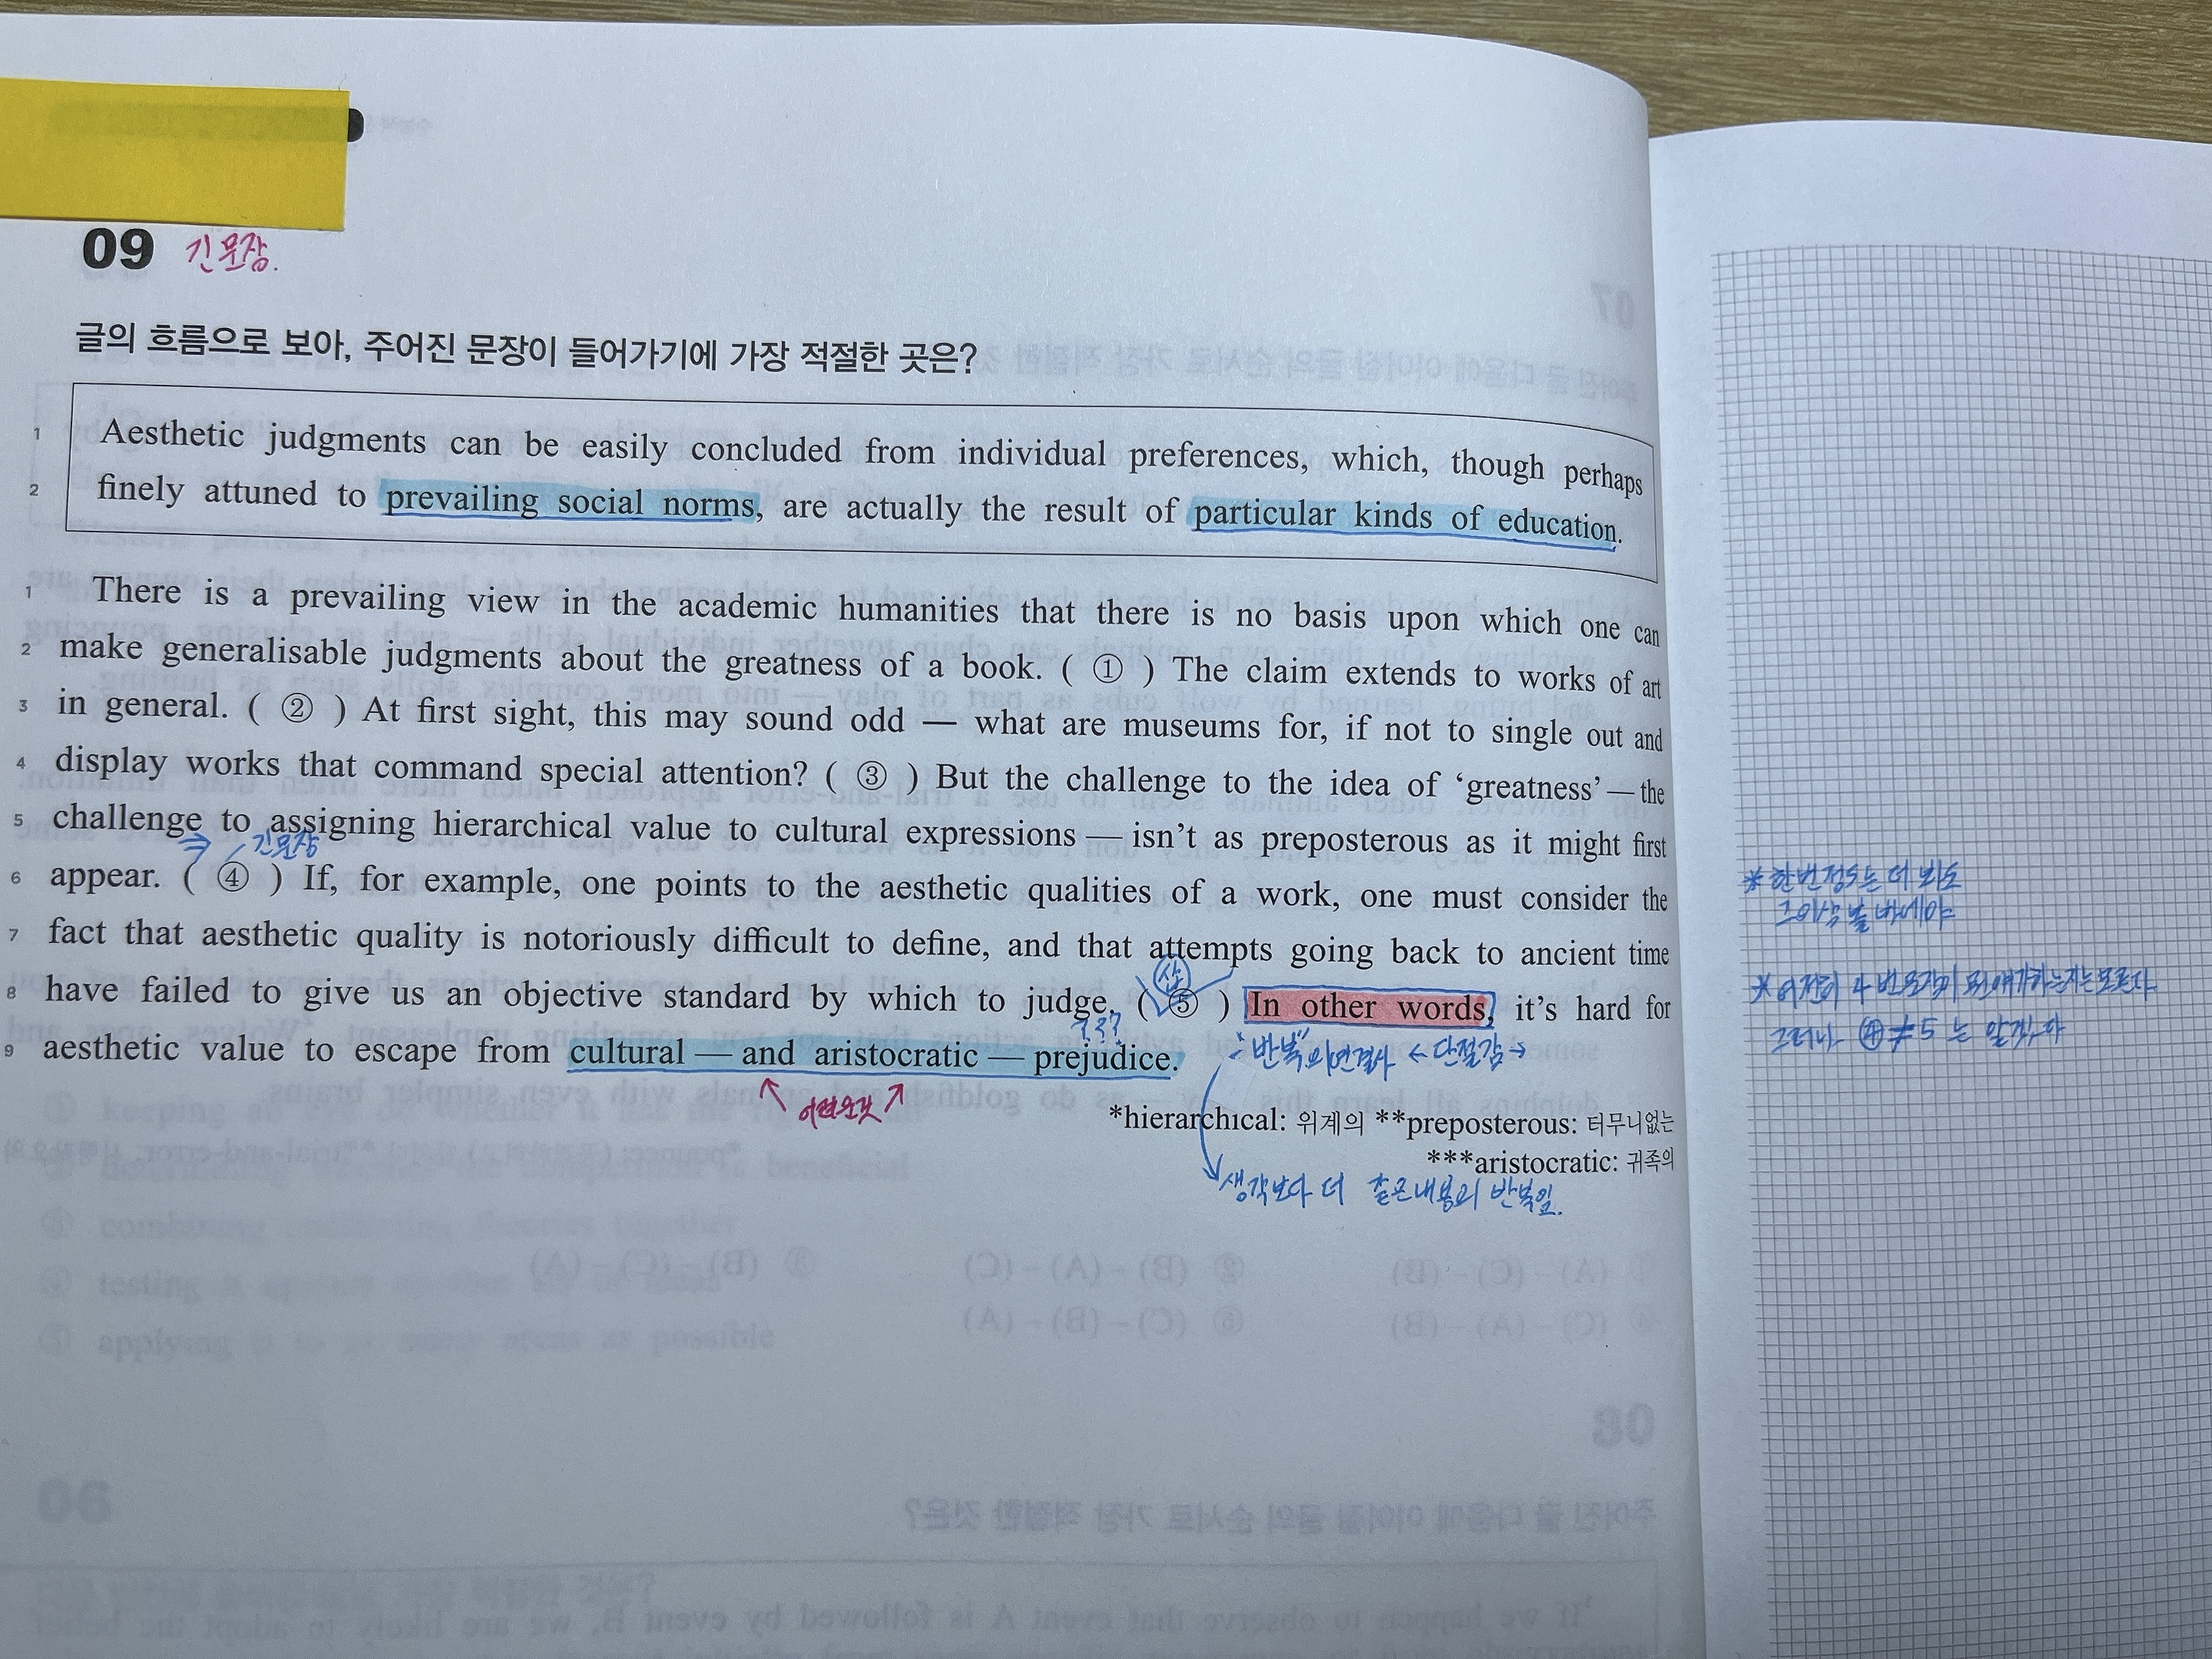 09 긴문장.
글의 흐름으로 보아, 주어진 문장이 들어가기에 가장 적절한 곳은?
1 Aesthetic judgments can be easily concluded from individual preferences, which, though perhaps
2 finely attuned to prevailing social norms, are actually the result of particular kinds of education.
1 There is a prevailing view in the academic humanities that there is no basis upon which one can
2 make generalisable judgments about the greatness of a book. ( ① ) The claim extends to works of art
3 in general. ( ② ) At first sight, this may sound odd — what are museums for, if not to single out and
4 display works that command special attention? ( ③ ) But the challenge to the idea of ‘greatness’ — the
5 challenge to assigning hierarchical value to cultural expressions — isn’t as preposterous as it might first
긴문장
6 appear. ( ④ ) If, for example, one points to the aesthetic qualities of a work, one must consider the
7 fact that aesthetic quality is notoriously difficult to define, and that attempts going back to ancient time
삽
8 have failed to give us an objective standard by which to judge. ( ⑤ ) In other words, it’s hard for
???
9 aesthetic value to escape from cultural — and aristocratic — prejudice.
"반복"의 연결사 ← 단절감 →
이런 것
*hierarchical: 위계의 **preposterous: 터무니없는
***aristocratic: 귀족의
생각보다 더 같은내용의 반복임.
*한번정도는 더 봐도
그이상 볼 밖에야
*여전히 4번문장이 뭔얘기하는지는모른다
그러나 ④≠5 는 알겠다